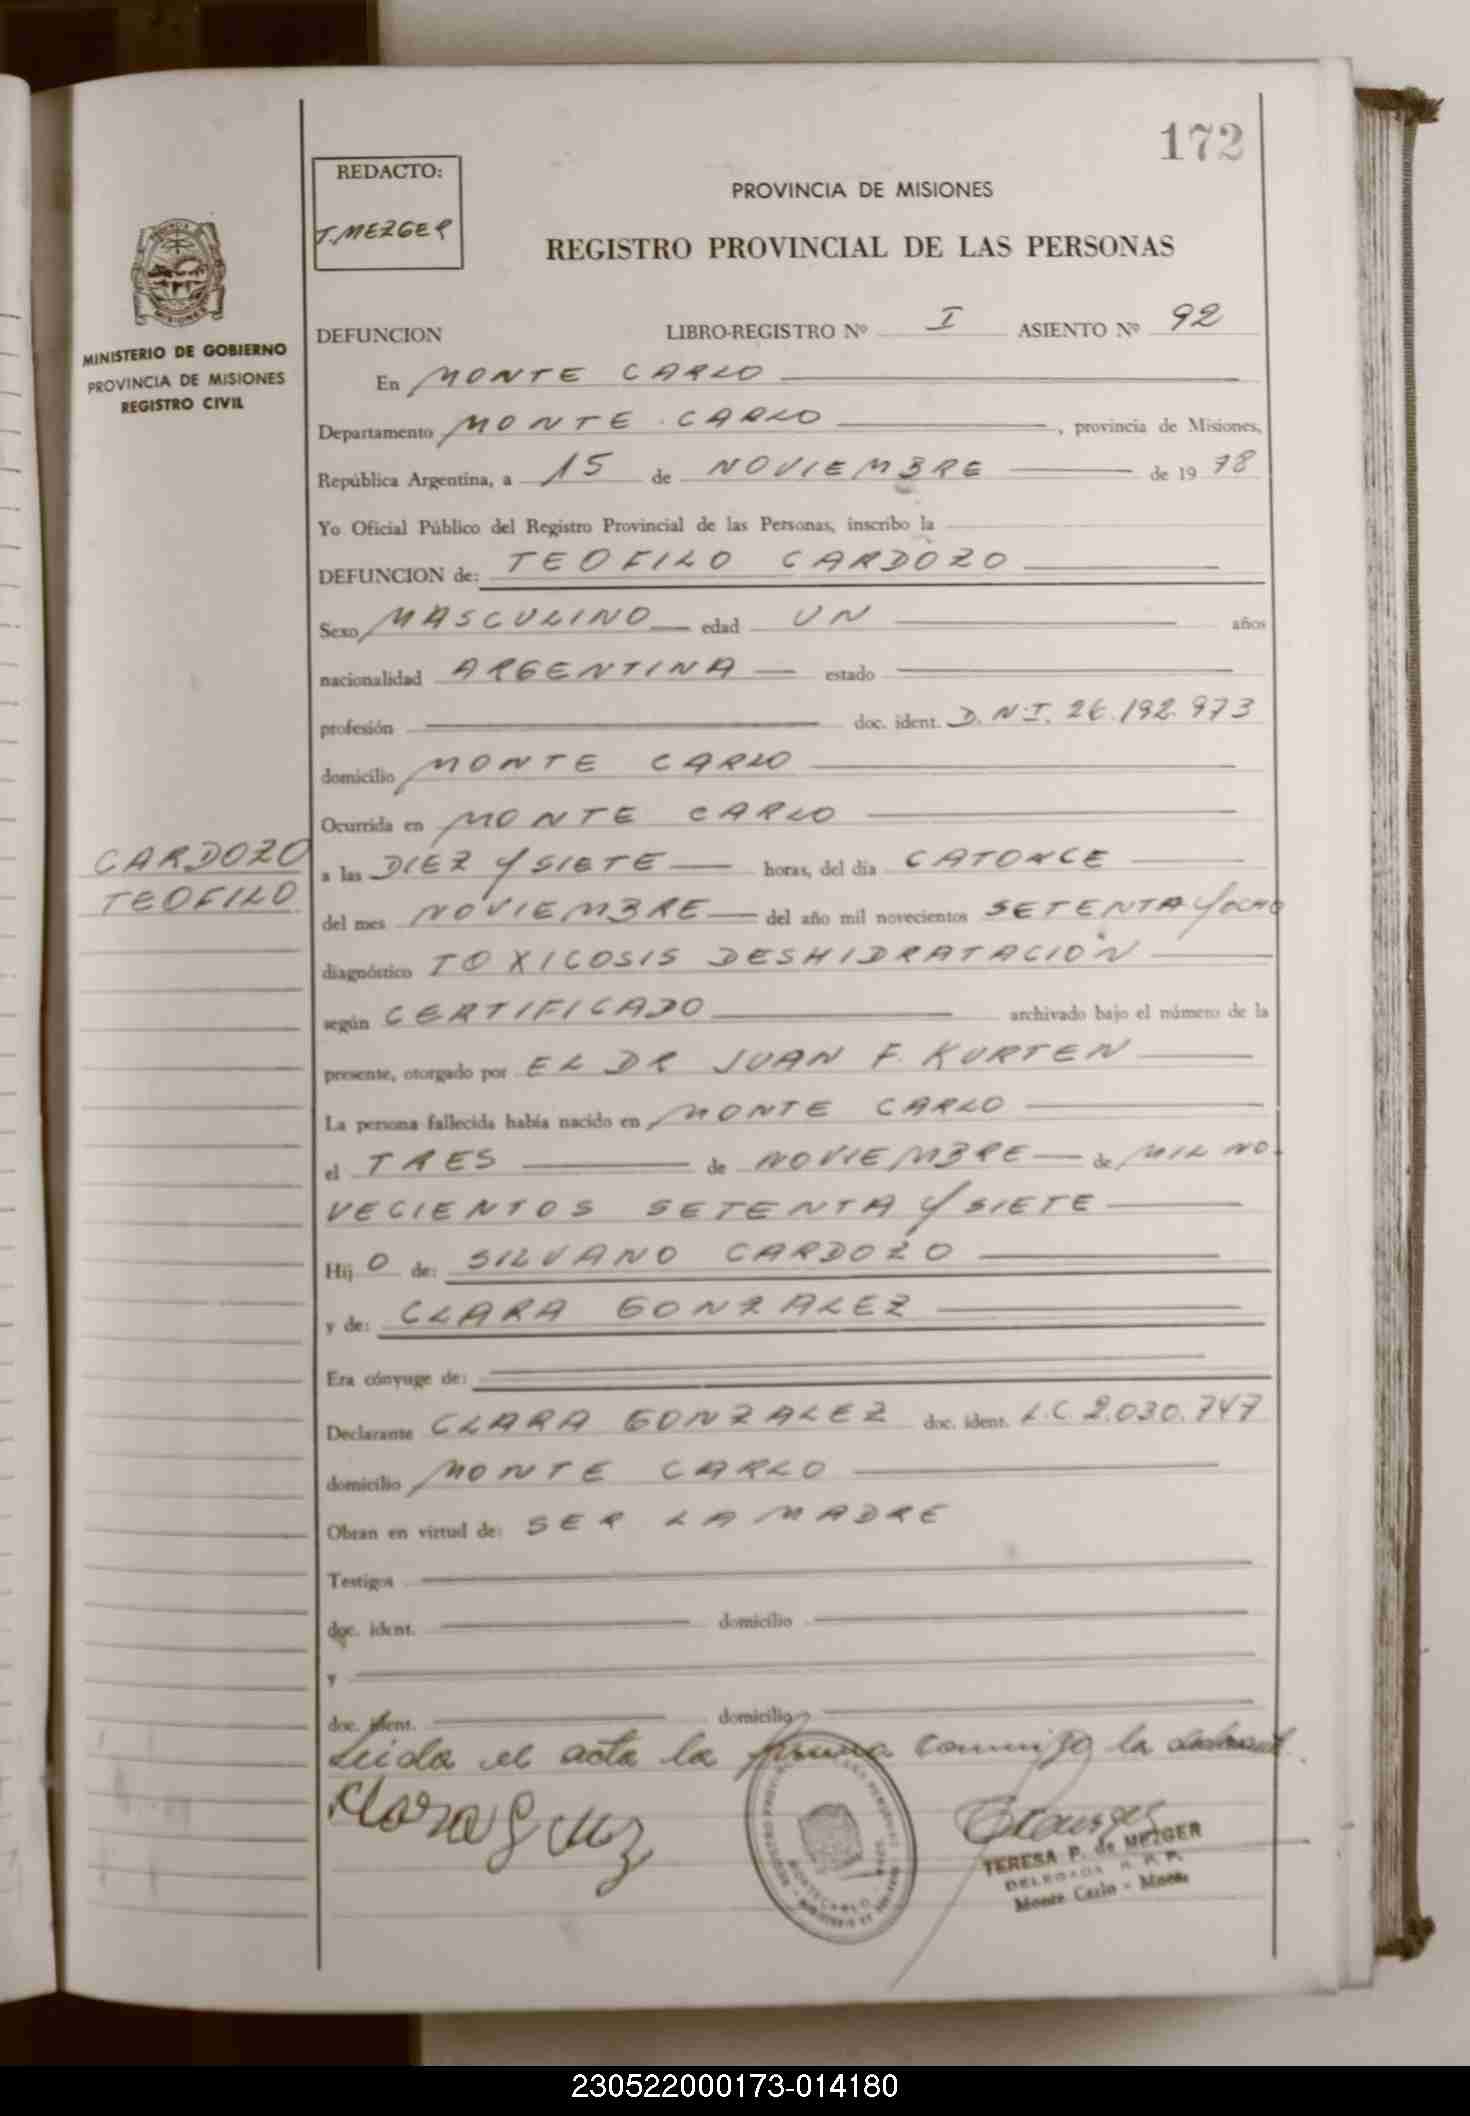 172
REDACTO:
T. MEZGER
PROVINCIA DE MISIONES
REGISTRO PROVINCIAL DE LAS PERSONAS
MINISTERIO DE GOBIERNO
PROVINCIA DE MISIONES
REGISTRO CIVIL
DEFUNCION LIBRO-REGISTRO Nº I ASIENTO Nº 92
En MONTE CARLO
Departamento MONTE CARLO, provincia de Misiones,
República Argentina, a 15 de NOVIEMBRE de 19 78
Yo Oficial Público del Registro Provincial de las Personas, inscribo la
DEFUNCION de: TEOFILO CARDOZO
Sexo MASCULINO edad UN años
nacionalidad ARGENTINA estado
profesión doc. ident. D.N.I. 26.192.973
domicilio MONTE CARLO
Ocurrida en MONTE CARLO
CARDOZO
TEOFILO
a las DIEZ Y SIETE horas, del día CATORCE
del mes NOVIEMBRE del año mil novecientos SETENTA Y OCHO
diagnóstico TOXICOSIS DESHIDRATACIÓN
según CERTIFICADO archivado bajo el número de la
presente, otorgado por EL DR JUAN F. KURTEN
La persona fallecida había nacido en MONTE CARLO
el TRES de NOVIEMBRE de MIL NO-
VECIENTOS SETENTA Y SIETE
Hij O de: SILVANO CARDOZO
y de: CLARA GONZALEZ
Era cónyuge de:
Declarante CLARA GONZALEZ doc. ident. L.C 2.030.747
domicilio MONTE CARLO
Obran en virtud de: SER LA MADRE
Testigos
doc. ident. domicilio
y
doc. ident. domicilio
Leida el acta la firma conmigo la
TERESA P. de MEZGER
DELEGADA R. P. P.
Monte Carlo - Mnes.
230522000173-014180